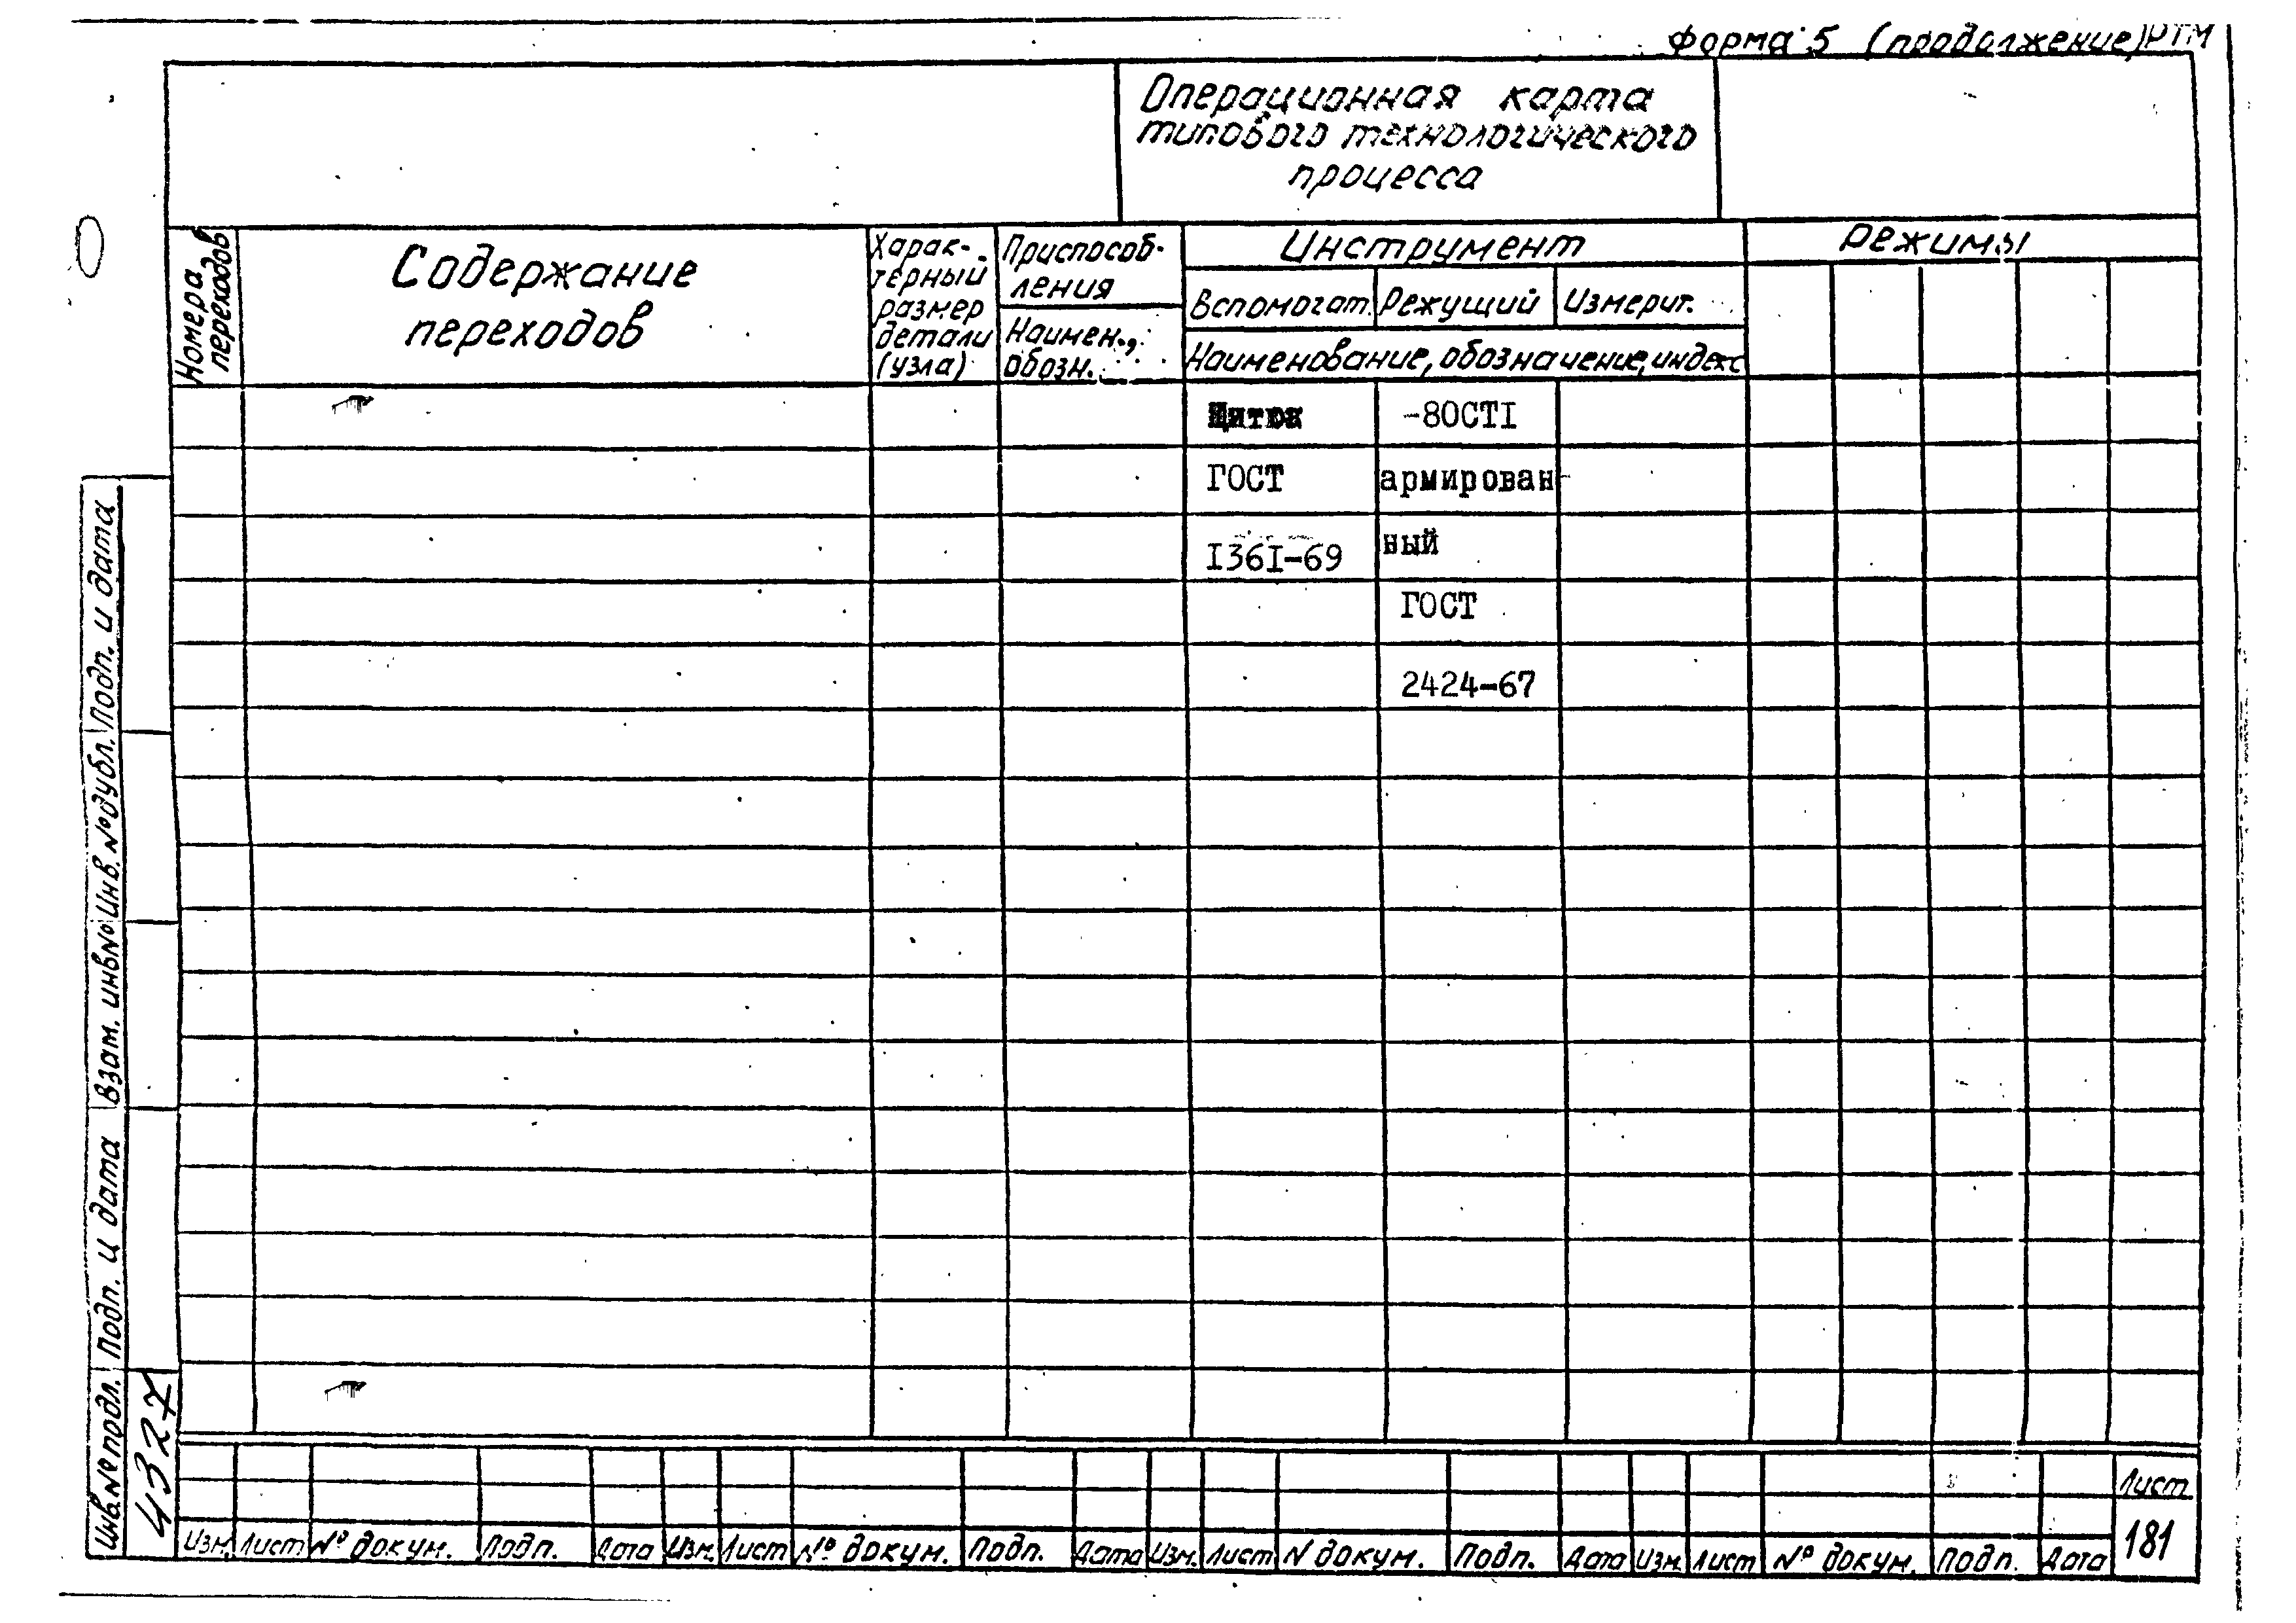 Форма 5 (продолжение) РТМ
Операционная карта
типового технологического
процесса
Номера
переходов
Содержание
переходов
Харак-
терный
размер
детали
(узла)
Приспособ-
ления
Наимен.,
обозн.
Инструмент
Вспомогат. Режущий Измерит.
Наименование, обозначение, индекс
Режимы
Щиток -80СТI
ГОСТ армирован-
I36I-69 ный
ГОСТ
2424-67
Подп. и дата
Инв. № дубл.
Взам. инв №
Подп. и дата
Инв № подл.
4327
Лист
181
Изм. Лист № докум. Подп. Дата Изм. Лист № докум. Подп. Дата Изм. Лист N докум. Подп. Дата Изм. Лист № докум. Подп. Дата